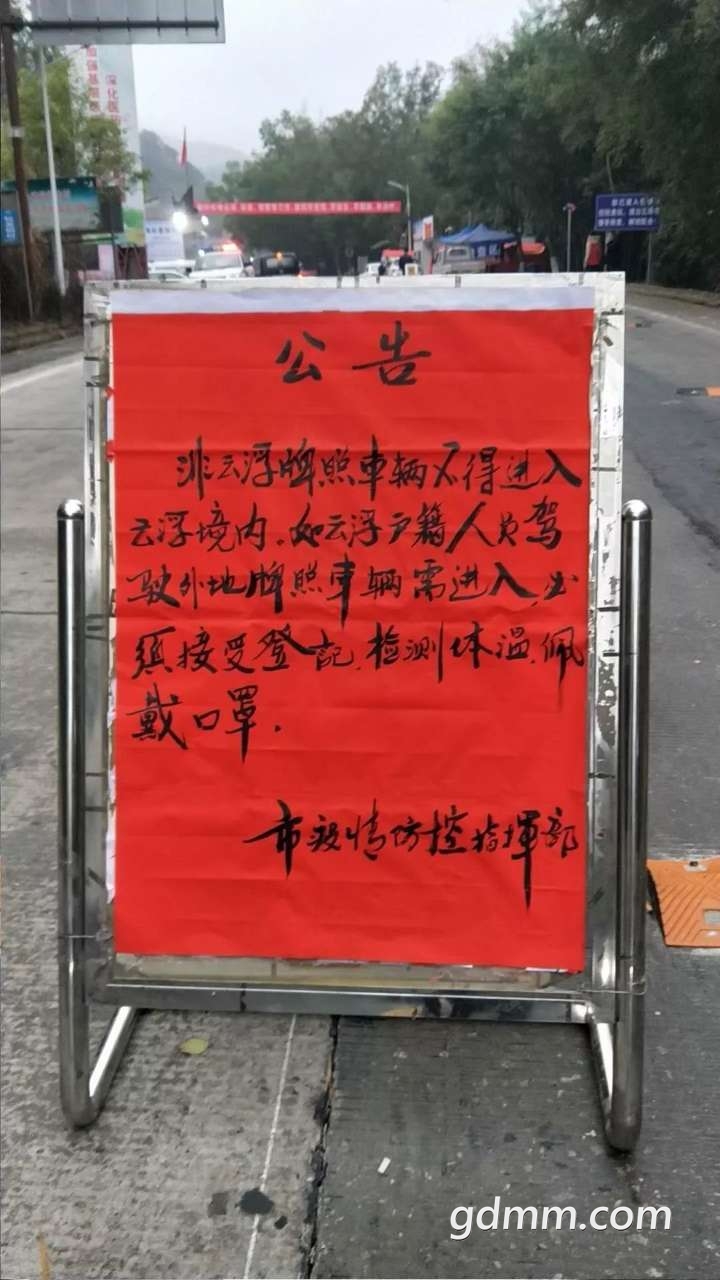 公告
非云浮牌照車辆不得进入
云浮境内。如云浮户籍人员驾
驶外地牌照車辆需进入,必
须接受登记,检测体温,佩
戴口罩.
市疫情防控指揮部
gdmm.com